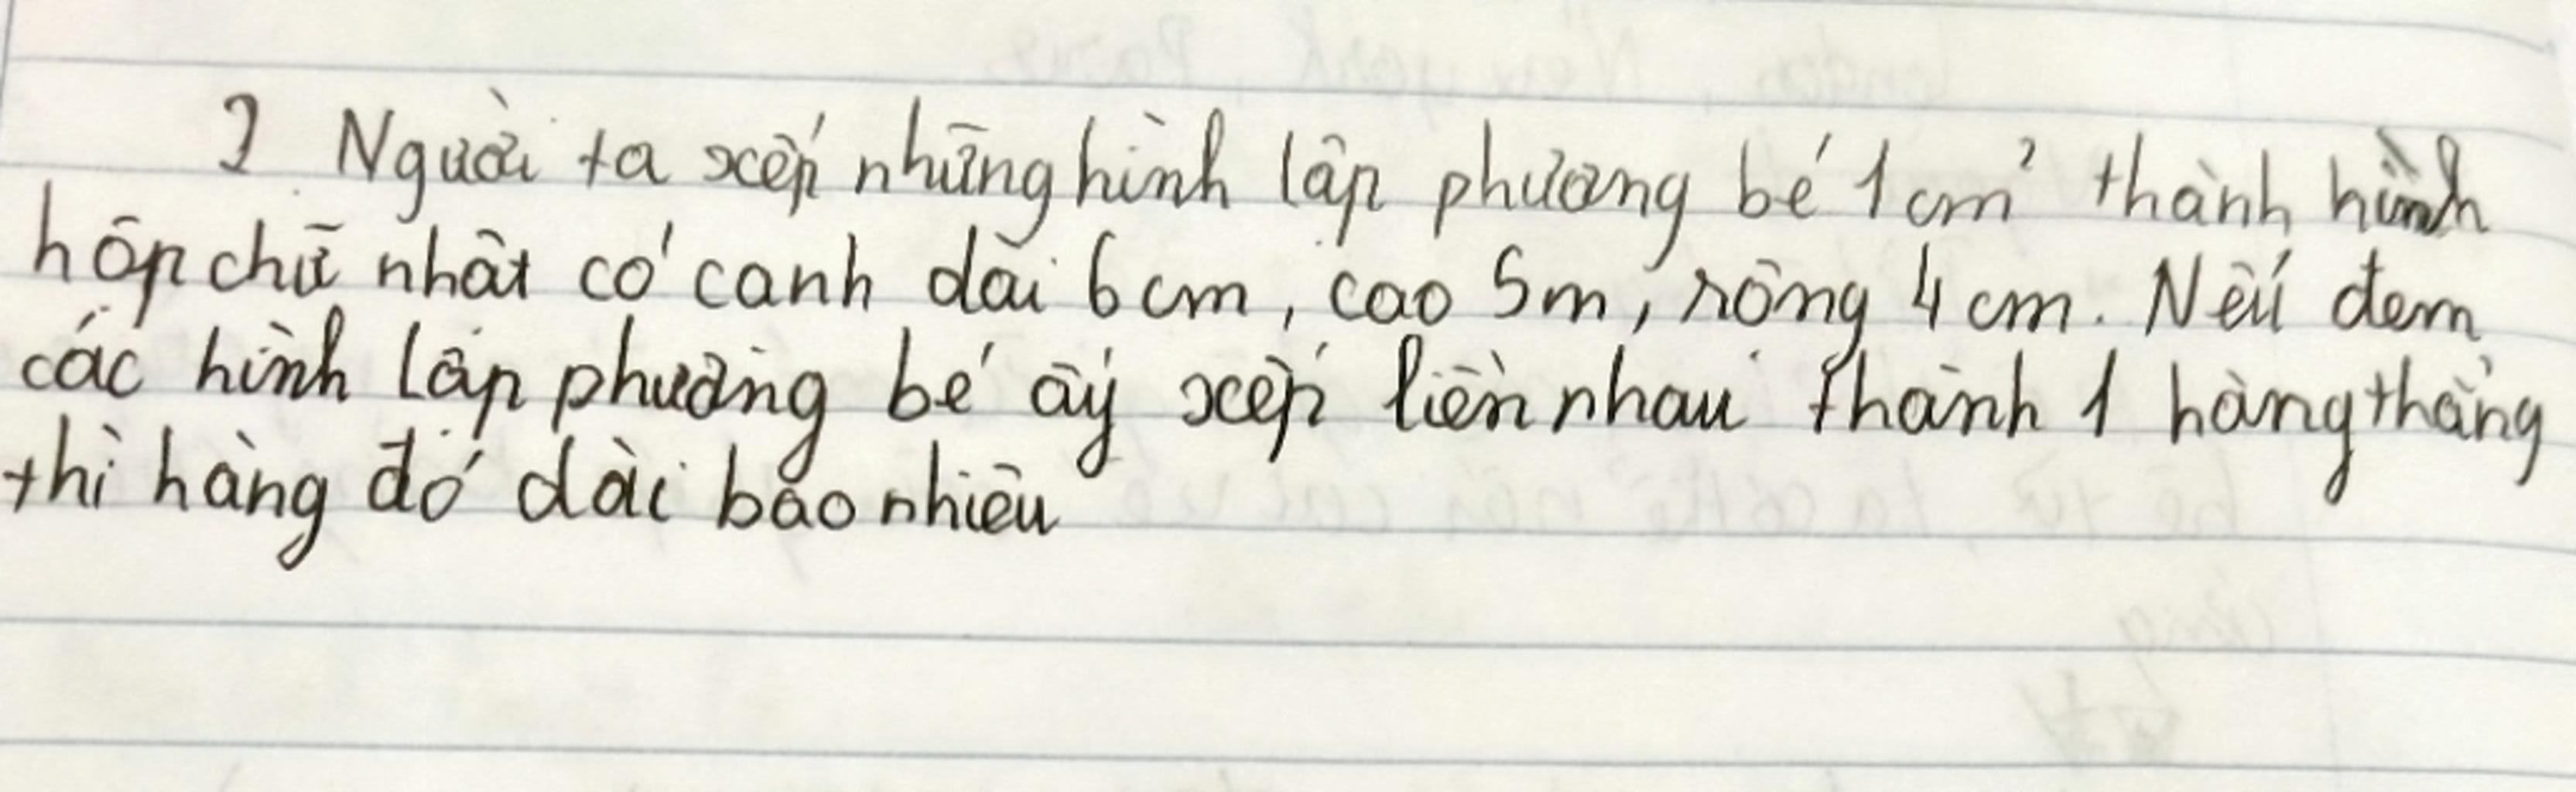 2 Người ta xếp những hình lập phương bé 1 cm³ thành hình
hộp chữ nhật có cạnh dài 6 cm, cao 5m, rộng 4 cm. Nếu đem
các hình lập phương bé ấy xếp liền nhau thành 1 hàng thẳng
thì hàng đó dài bao nhiêu